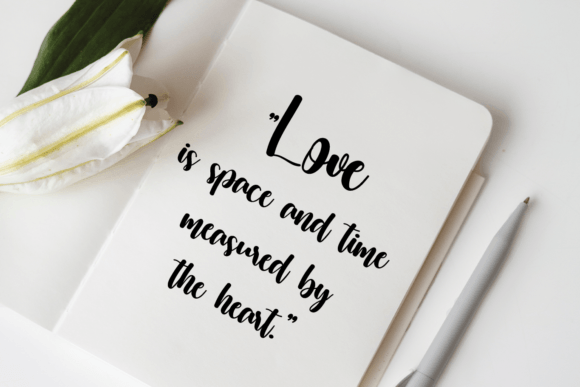 ”Love
is space and time
measured by
the heart.”